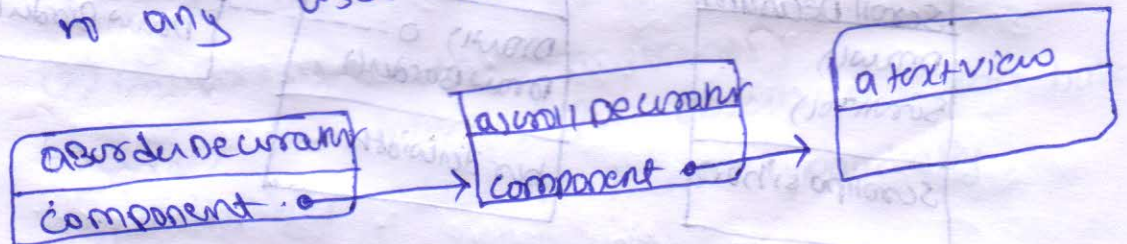 any
aBorderDecorator
component
aScrollDecorator
component
a textview